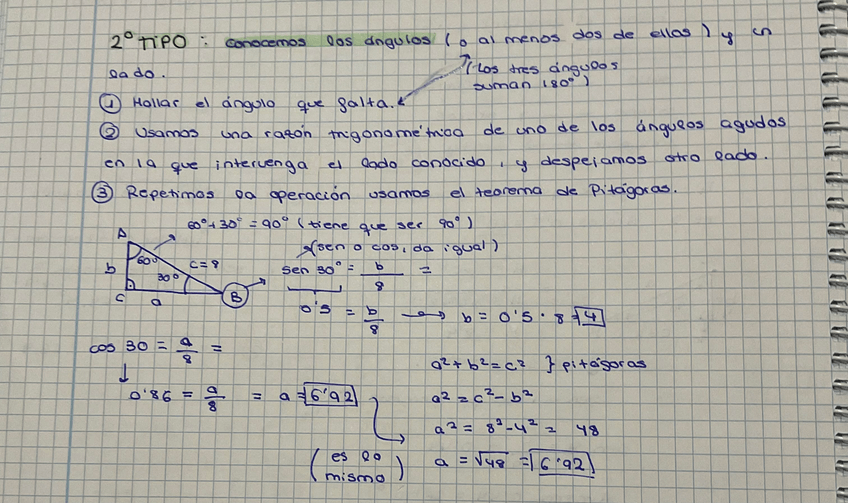 2º TIPO : conocemos los ángulos (o al menos dos de ellos) y un
lado.
(Los tres ángulos
suman 180º)
① Hallar el ángulo que falta.
② Usamos una razón trigonométrica de uno de los ángulos agudos
en la que intervenga el lado conocido, y despejamos otro lado.
③ Repetimos la operación usamos el teorema de Pitágoras.
60º+30º = 90º (tiene que ser 90º)
(sen o cos, da igual)
A
60º
b
c=8
30º
C
a
B
sen 30º = b/8 =
0'5 = b/8 → b = 0'5 · 8 = 4
cos 30 = a/8 =
↓
0'86 = a/8 = a = 6'92
a² + b² = c² } pitágoras
a² = c² - b²
a² = 8² - 4² = 48
a = √48 = 6'92
(es lo
mismo)